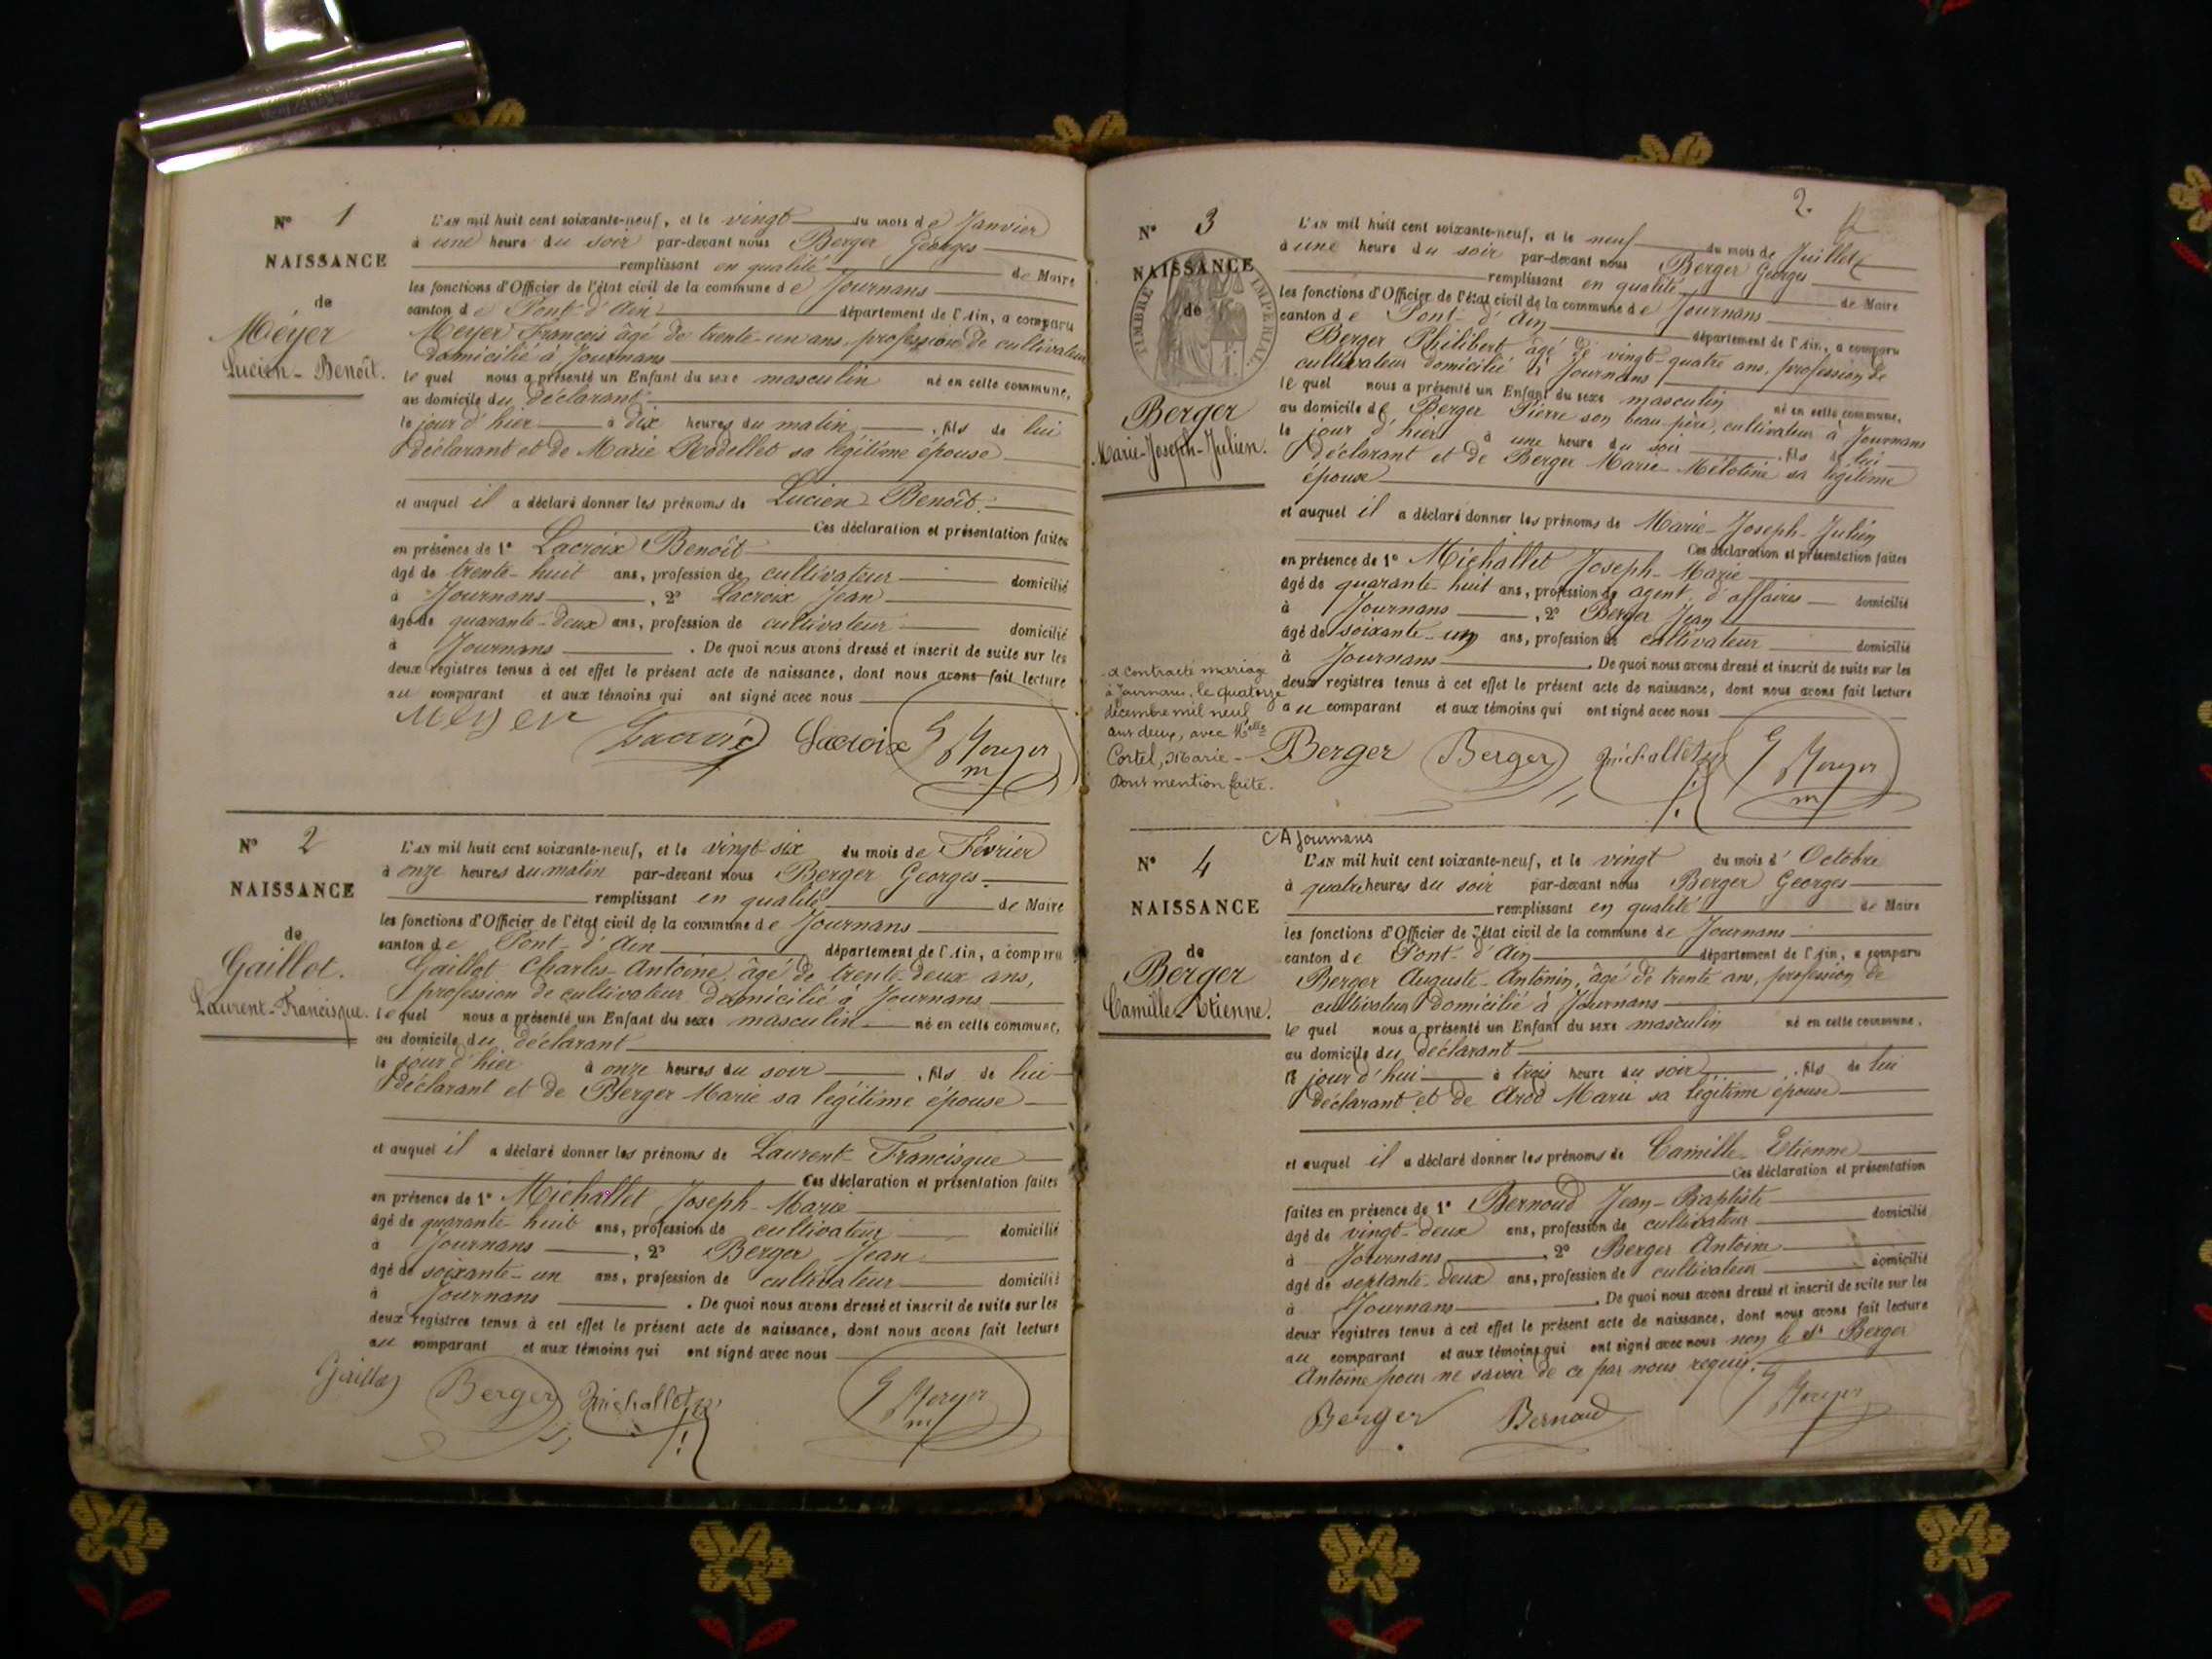 N° 1
NAISSANCE
de
Méyer
Lucien-Benoît.
L'AN mil huit cent soixante-neuf, et le vingt du mois de Janvier
à une heure du soir par-devant nous Berger Georges
remplissant en qualité de Maire
les fonctions d'Officier de l'état civil de la commune de Journans
canton de Pont-d'Ain département de l'Ain, a comparu
Meyer François âgé de trente-un ans, profession de cultivateur
domicilié à Journans
lequel nous a présenté un Enfant du sexe masculin né en cette commune,
au domicile du déclarant
le jour d'hier à dix heures du matin, fils de lui
déclarant et de Marie Rodellet sa légitime épouse
et auquel il a déclaré donner les prénoms de Lucien Benoît.
Ces déclaration et présentation faites
en présence de 1° Lacroix Benoît
âgé de trente-huit ans, profession de cultivateur domicilié
à Journans, 2° Lacroix Jean
âgé de quarante-deux ans, profession de cultivateur domicilié
à Journans. De quoi nous avons dressé et inscrit de suite sur les
deux registres tenus à cet effet le présent acte de naissance, dont nous avons fait lecture
au comparant et aux témoins qui ont signé avec nous
Meyer Lacroix Lacroix G Berger
m
N° 2
NAISSANCE
de
Gaillot.
Laurent-Francisque.
L'AN mil huit cent soixante-neuf, et le vingt-six du mois de Février
à onze heures du matin par-devant nous Berger Georges.
remplissant en qualité de Maire
les fonctions d'Officier de l'état civil de la commune de Journans
canton de Pont-d'Ain département de l'Ain, a comparu
Gaillot Charles-Antoine, âgé de trente-deux ans,
profession de cultivateur domicilié à Journans
lequel nous a présenté un Enfant du sexe masculin né en cette commune,
au domicile du déclarant
le jour d'hier à onze heures du soir, fils de lui
déclarant et de Berger Marie sa légitime épouse
et auquel il a déclaré donner les prénoms de Laurent-Francisque
Ces déclaration et présentation faites
en présence de 1° Michallet Joseph-Marie
âgé de quarante-huit ans, profession de cultivateur domicilié
à Journans, 2° Berger Jean
âgé de soixante-un ans, profession de cultivateur domicilié
à Journans. De quoi nous avons dressé et inscrit de suite sur les
deux registres tenus à cet effet le présent acte de naissance, dont nous avons fait lecture
au comparant et aux témoins qui ont signé avec nous
Gaillot Berger Michallet G Berger
m
2.
N° 3
NAISSANCE
de
TIMBRE IMPÉRIAL
Berger
Marie-Joseph-Julien.
L'AN mil huit cent soixante-neuf, et le neuf du mois de Juillet
à une heure du soir par-devant nous Berger Georges
remplissant en qualité de Maire
les fonctions d'Officier de l'état civil de la commune de Journans
canton de Pont-d'Ain département de l'Ain, a comparu
Berger Philibert âgé de vingt-quatre ans, profession de
cultivateur domicilié à Journans
lequel nous a présenté un Enfant du sexe masculin né en cette commune,
au domicile de Berger Pierre son beau-père, cultivateur à Journans
le jour d'hier à une heure du soir, fils de lui
déclarant et de Berger Marie-Mélotine sa légitime
épouse
et auquel il a déclaré donner les prénoms de Marie-Joseph-Julien
Ces déclaration et présentation faites
en présence de 1° Michallet Joseph-Marie
âgé de quarante-huit ans, profession de agent d'affaires domicilié
à Journans, 2° Berger Jean
âgé de soixante-un ans, profession de cultivateur domicilié
à Journans. De quoi nous avons dressé et inscrit de suite sur les
deux registres tenus à cet effet le présent acte de naissance, dont nous avons fait lecture
au comparant et aux témoins qui ont signé avec nous
a contracté mariage
à Journans, le quatorze
décembre mil neuf
cent deux, avec Melle
Cortel, Marie-
Dont mention faite.
Berger Berger Michallet G Berger
m
A Journans
N° 4
NAISSANCE
de
Berger
Camille-Etienne.
L'AN mil huit cent soixante-neuf, et le vingt du mois d'Octobre
à quatre heures du soir par-devant nous Berger Georges
remplissant en qualité de Maire
les fonctions d'Officier de l'état civil de la commune de Journans
canton de Pont-d'Ain département de l'Ain, a comparu
Berger Auguste-Antonin, âgé de trente ans, profession de
cultivateur domicilié à Journans
lequel nous a présenté un Enfant du sexe masculin né en cette commune,
au domicile du déclarant
le jour d'hui à trois heure du soir, fils de lui
déclarant et de Arod Marie sa légitime épouse
et auquel il a déclaré donner les prénoms de Camille-Etienne
Ces déclaration et présentation
faites en présence de 1° Bernoud Jean-Baptiste
âgé de vingt-deux ans, profession de cultivateur domicilié
à Journans, 2° Berger Antoine
âgé de septante-deux ans, profession de cultivateur domicilié
à Journans. De quoi nous avons dressé et inscrit de suite sur les
deux registres tenus à cet effet le présent acte de naissance, dont nous avons fait lecture
au comparant et aux témoins qui ont signé avec nous non le Sr Berger
Antoine pour ne savoir de ce par nous requis.
Berger Bernoud G Berger